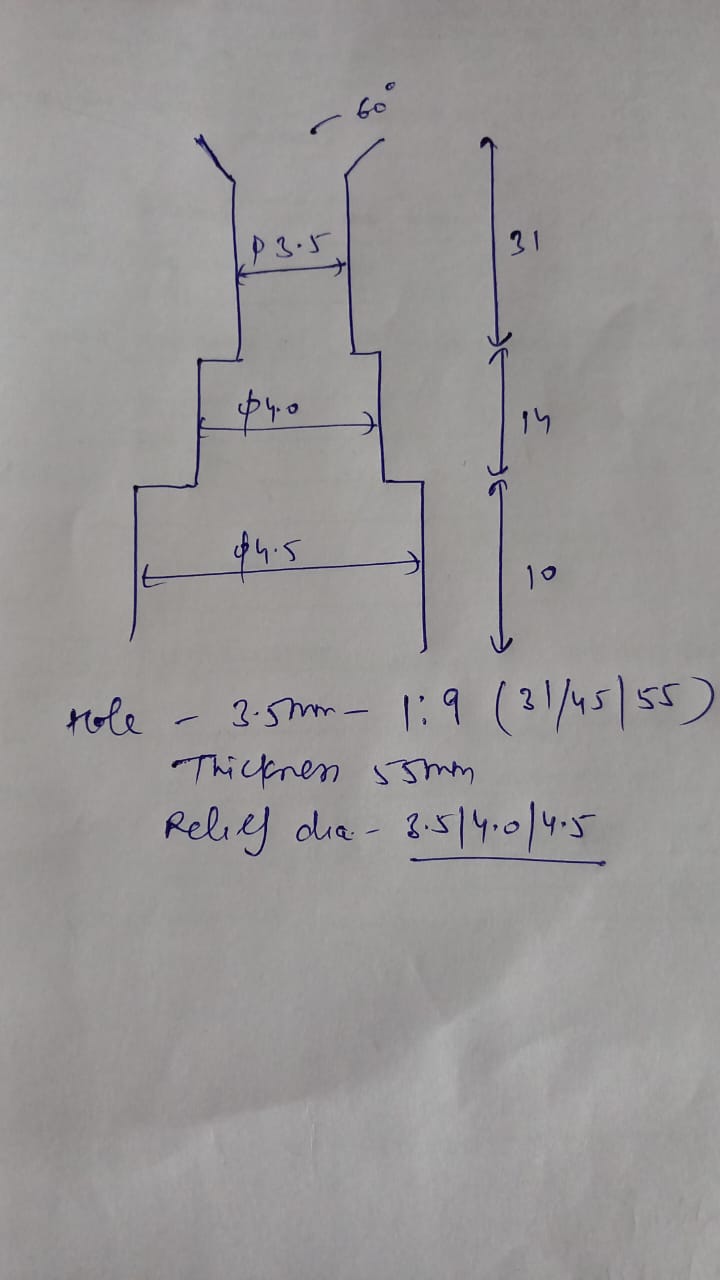 60°
φ3.5
31
φ4.0
14
φ4.5
10
Hole - 3.5mm - 1:9 (31/45/55)
Thickness 55mm
Relief dia - 3.5/4.0/4.5